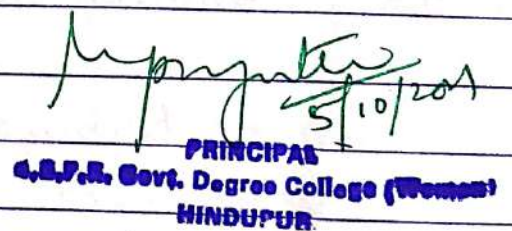 5/10/201
PRINCIPAL
Govt. Degree College (Women)
HINDUPUR